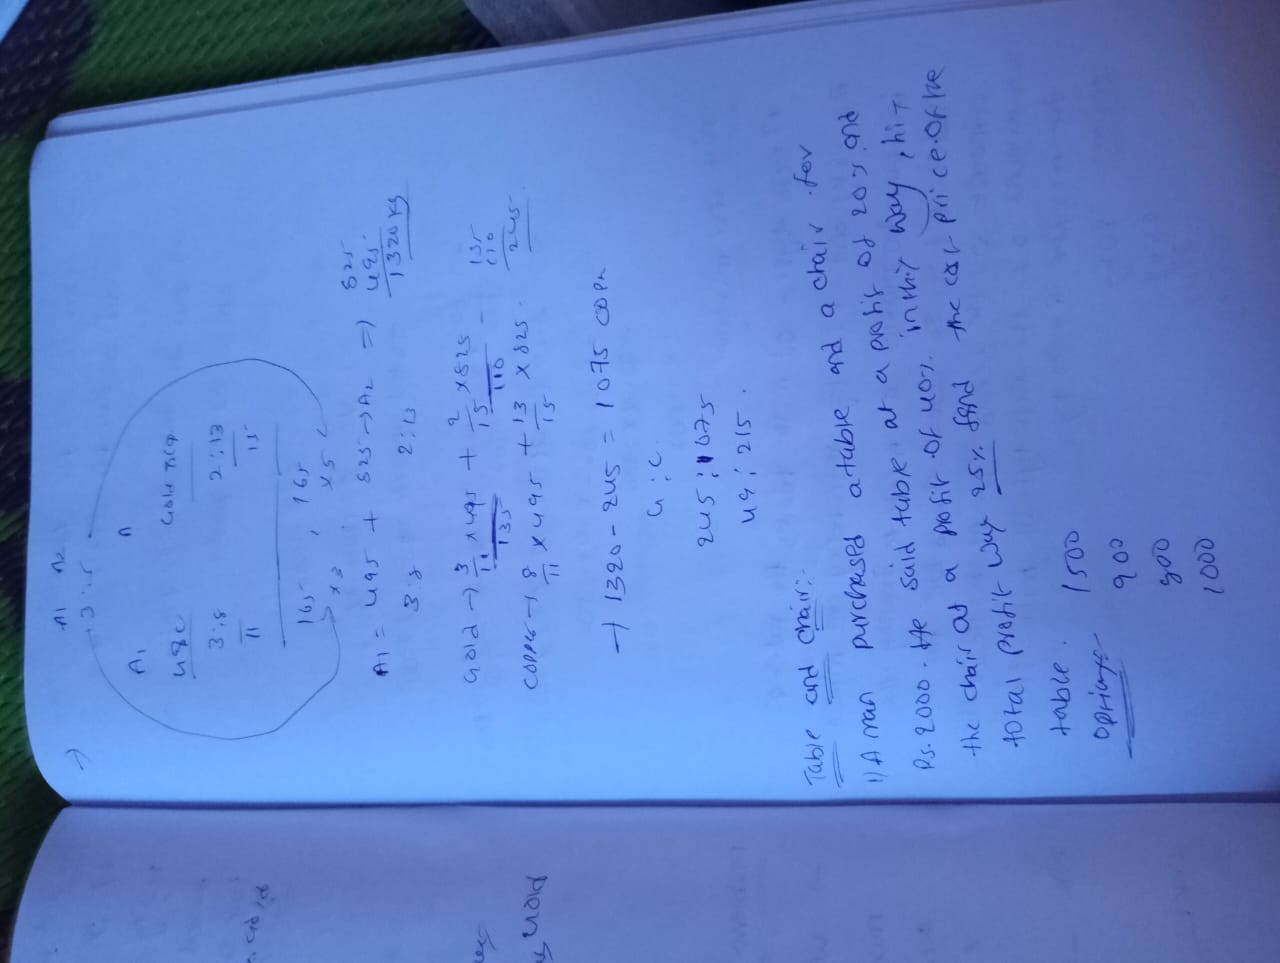 →
A1 A2
3:5
A1 A
G&C Gold &Cop
3:8 2:13
11 15
165 , 165
×3 ×5
A1 = 495 + 825→A2 ⇒) 825
495
1320 kg
3:8 2:13
Gold → 3/11 × 495 + 2/15 × 825
135 110
135
110
245
Copper → 8/11 × 495 + 13/15 × 825
→ 1320 - 245 = 1075 copr
G : C
245 : 1075
49 : 215.
Table and chair:-
1) A man purchased a table and a chair for
Rs. 2000. He said table at a profit of 20% and
the chair at a profit of 40%. in this way, his
total profit way 25% find the cost price of the
table. 1500
options:- 900
800
1000
Gold